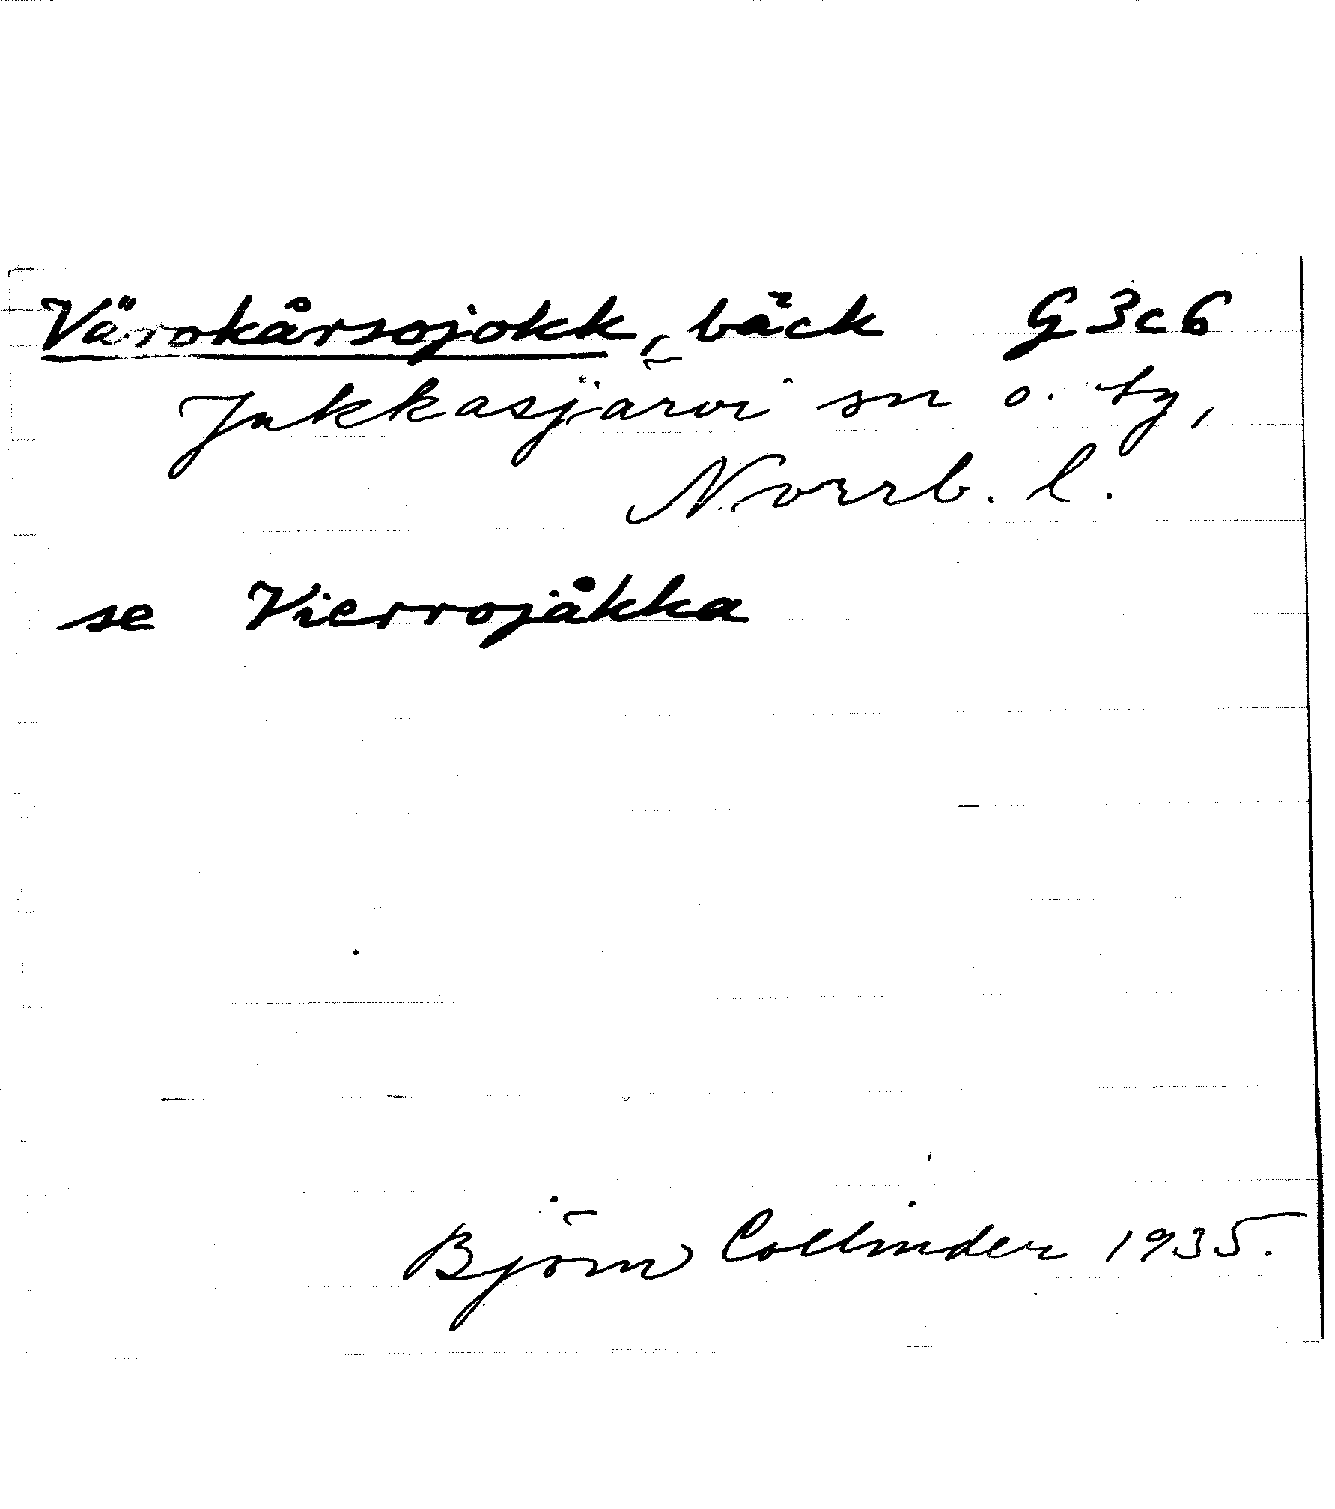 Värokårsojokk, bäck G3c6
Jukkasjärvi sn o. tg,
Norrb. l.
se Vierrojåkka
Björn Collinder 1935.